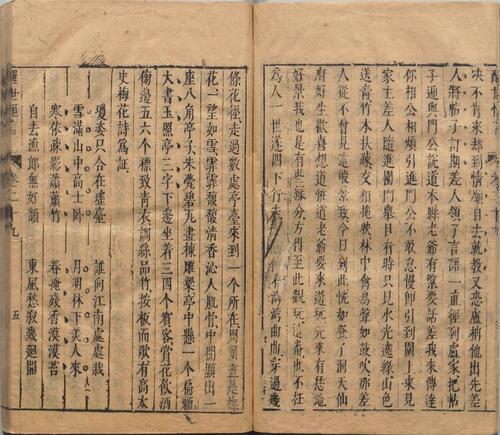 決不肯來卻到情願自去就敎又去盧柟他出先差
人將帖子訂期差人領了言語一直徑到盧家把帖
子遞與門公說道本縣老爺有緊要話差我來傳達
你相公相煩引進門公不敢怠慢師引到園上來見
家主差人隨進園門舉目看時只見水光遶綠山色
送靑竹木扶疎交相掩映林中禽鳥聲如鼓吹那差
人從不曾見這般景致今日到此恍如登了洞天仙
府好生歡喜想道怪道老爺要來遊玩元來有恁地
好景我也是有些緣分方得至此觀玩這番也不枉
爲人一世遂四下行
灣灣曲曲穿過幾
條花徑走過數處亭臺來到一个所在周圍盡是梅
花一望如雪霏霏馥馥清香沁人肌骨中間顯出一
座八角亭子朱甍碧瓦畫棟雕梁亭中懸一个扁額
大書玉照亭三字下邊坐着三四个賓客賞花飲酒
傍邊五六个標致靑衣調絲品竹按板而歌有高太
史梅花詩爲証
瓊姿只合在瑤臺
誰向江南處處栽
雪滿山中高士臥
月明林下美人來
寒依疎影蕭蕭竹
春掩殘香漠漠苔
自去漁郎無好韻
東風愁寂幾廻開
醒世恒言
卷二十九
五